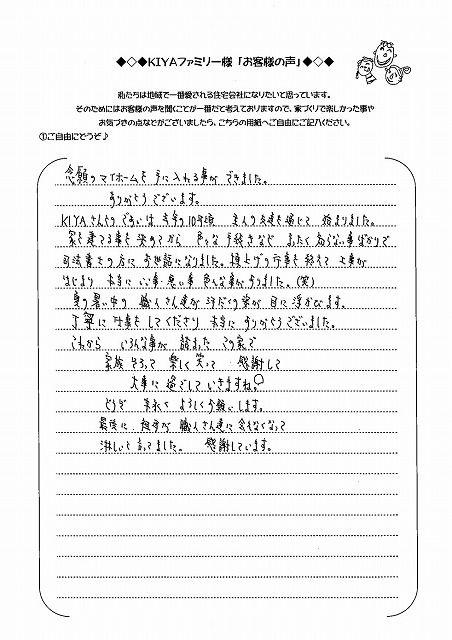 ◆◇◆KIYAファミリー様「お客様の声」◆◇◆
私たちは地域で一番愛される住宅会社になりたいと思っています。
そのためにはお客様の声を聞くことが一番だと考えておりますので、家づくりで楽しかった事や
お気づきの点などがございましたら、こちらの用紙へご自由にご記入ください。
①ご自由にどうぞ♪
念願のマイホームを手に入れる事ができました。
ありがとうございます。
KIYAさんとの出あいは 去年の10月頃 主人の友達を通じて 始まりました。
家を建てる事を決めてから 色々な手続きなど まったく知らない事ばかりで
司法書士の方に お世話になりました。棟上げの行事も終えて 工事が
はじまり 本当に いい事・悪い事 色んな事がありました。(笑)
夏の暑い中の 職人さん達が 汗だくの姿が 目に浮かびます。
丁寧に 仕事を してくださり 本当に ありがとうございました。
これから いろんな事が 詰まった この家で
家族 そろって 楽しく 笑って 感謝して
大事に 過ごしていきますね。
どうぞ 末永く よろしくお願いします。
最後に 祖母が 職人さん達に 会えなくなって
淋しいと言ってました。 感謝しています。